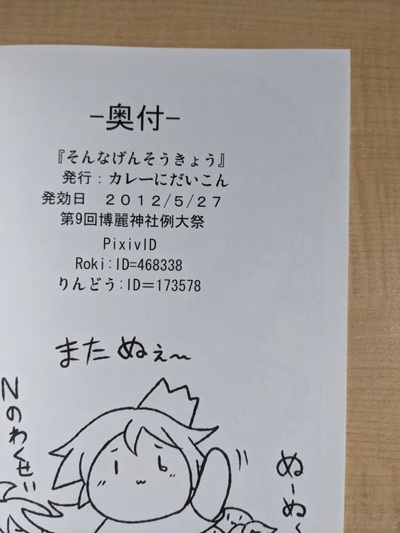 -奥付-
『そんなげんそうきょう』
発行：カレーにだいこん
発効日　２０１２/５/２７
第9回博麗神社例大祭
PixivID
Roki:ID=468338
りんどう:ID＝173578
またぬぇ〜
Nのわくせ゛
ぬーぬ〜